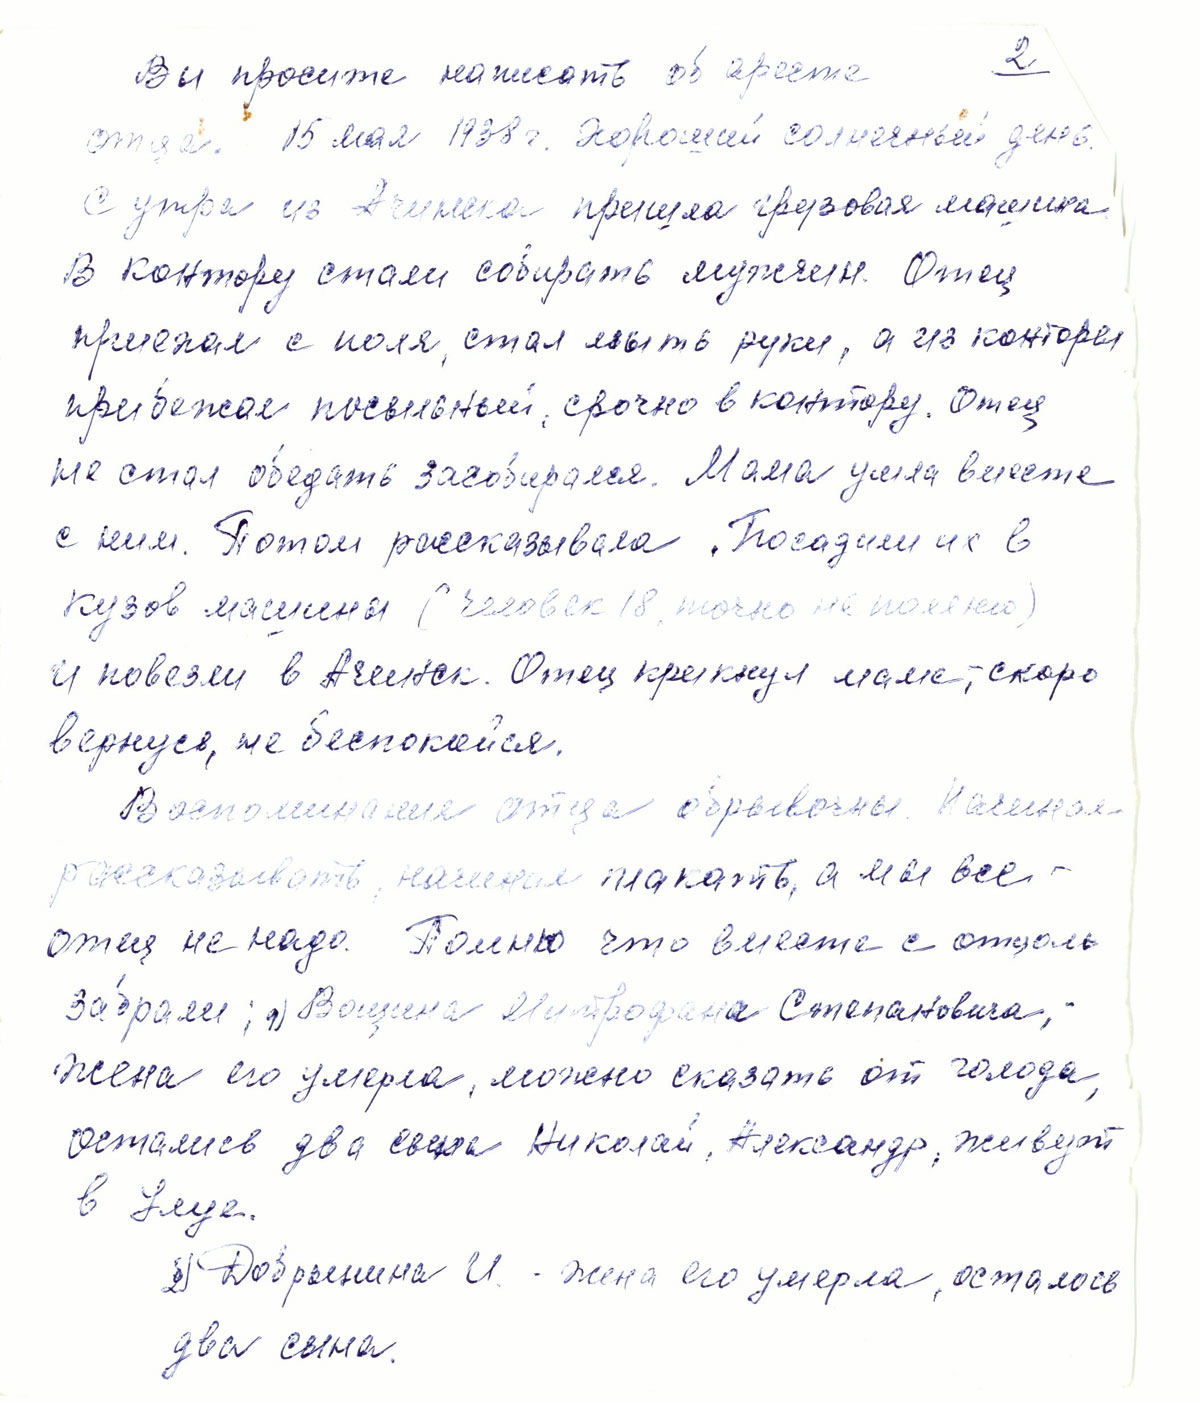 2
Вы просите написать об аресте
отца. 15 мая 1938 г. Хороший солнечный день.
С утра из Ачинска пришла грузовая машина.
В контору стали собирать мужчин. Отец
приехал с поля, стал мыть руки, а из конторы
прибежал посыльный, срочно в контору. Отец
не стал обедать засобирался. Мама ушла вместе
с ним. Потом рассказывала. Посадили их в
кузов машины (человек 18, точно не помню)
и повезли в Ачинск. Отец крикнул маме,- скоро
вернусь, не беспокойся.
Воспоминания отца обрывочны. Начинал
рассказывать, начинал плакать, а мы все -
отец не надо. Помню что вместе с отцом
забрали; а) Вощина Митрофана Степановича,-
жена его умерла, можно сказать от голода,
остались два сына Николай, Александр, живут
в
б) Добрынина И. - жена его умерла, осталось
два сына.